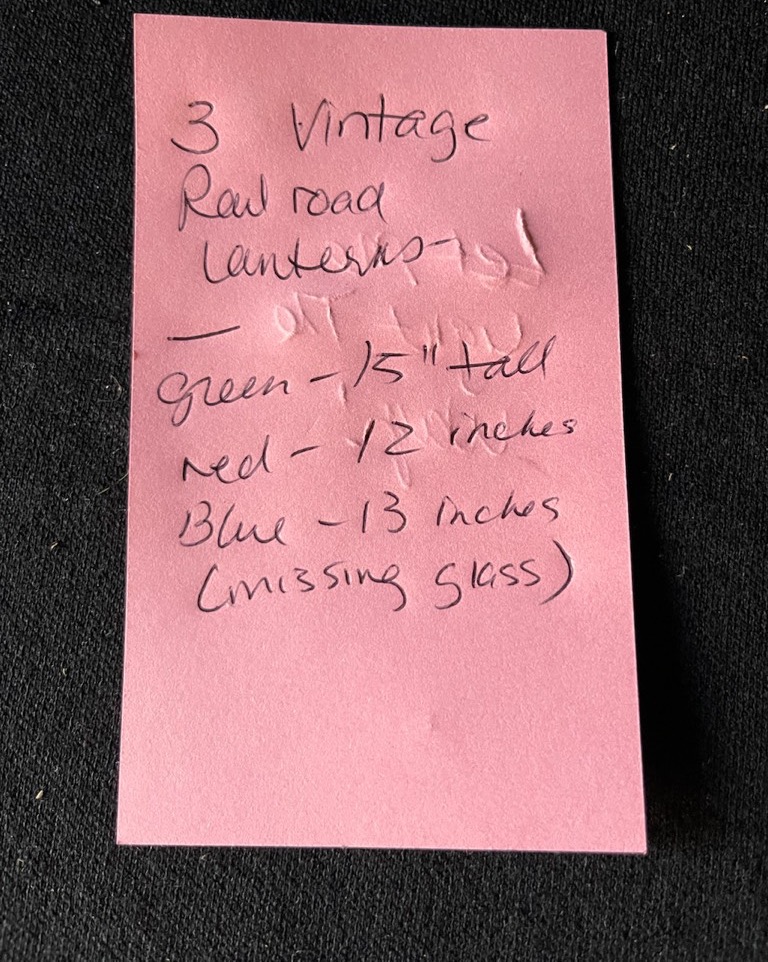 3 Vintage
Railroad
Lanterns-
—
green - 15" tall
red - 12 inches
Blue - 13 inches
(missing glass)